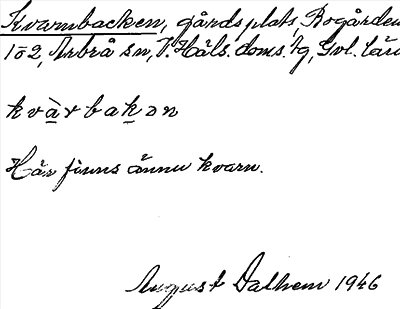 Kvarnbacken, gårdsplats, Rogården
1õ2, Arbrå sn, V. Häls. doms. hg, Gvl. län
kvàrbakən
Här finns ännu kvarn.
August Dalhem 1946